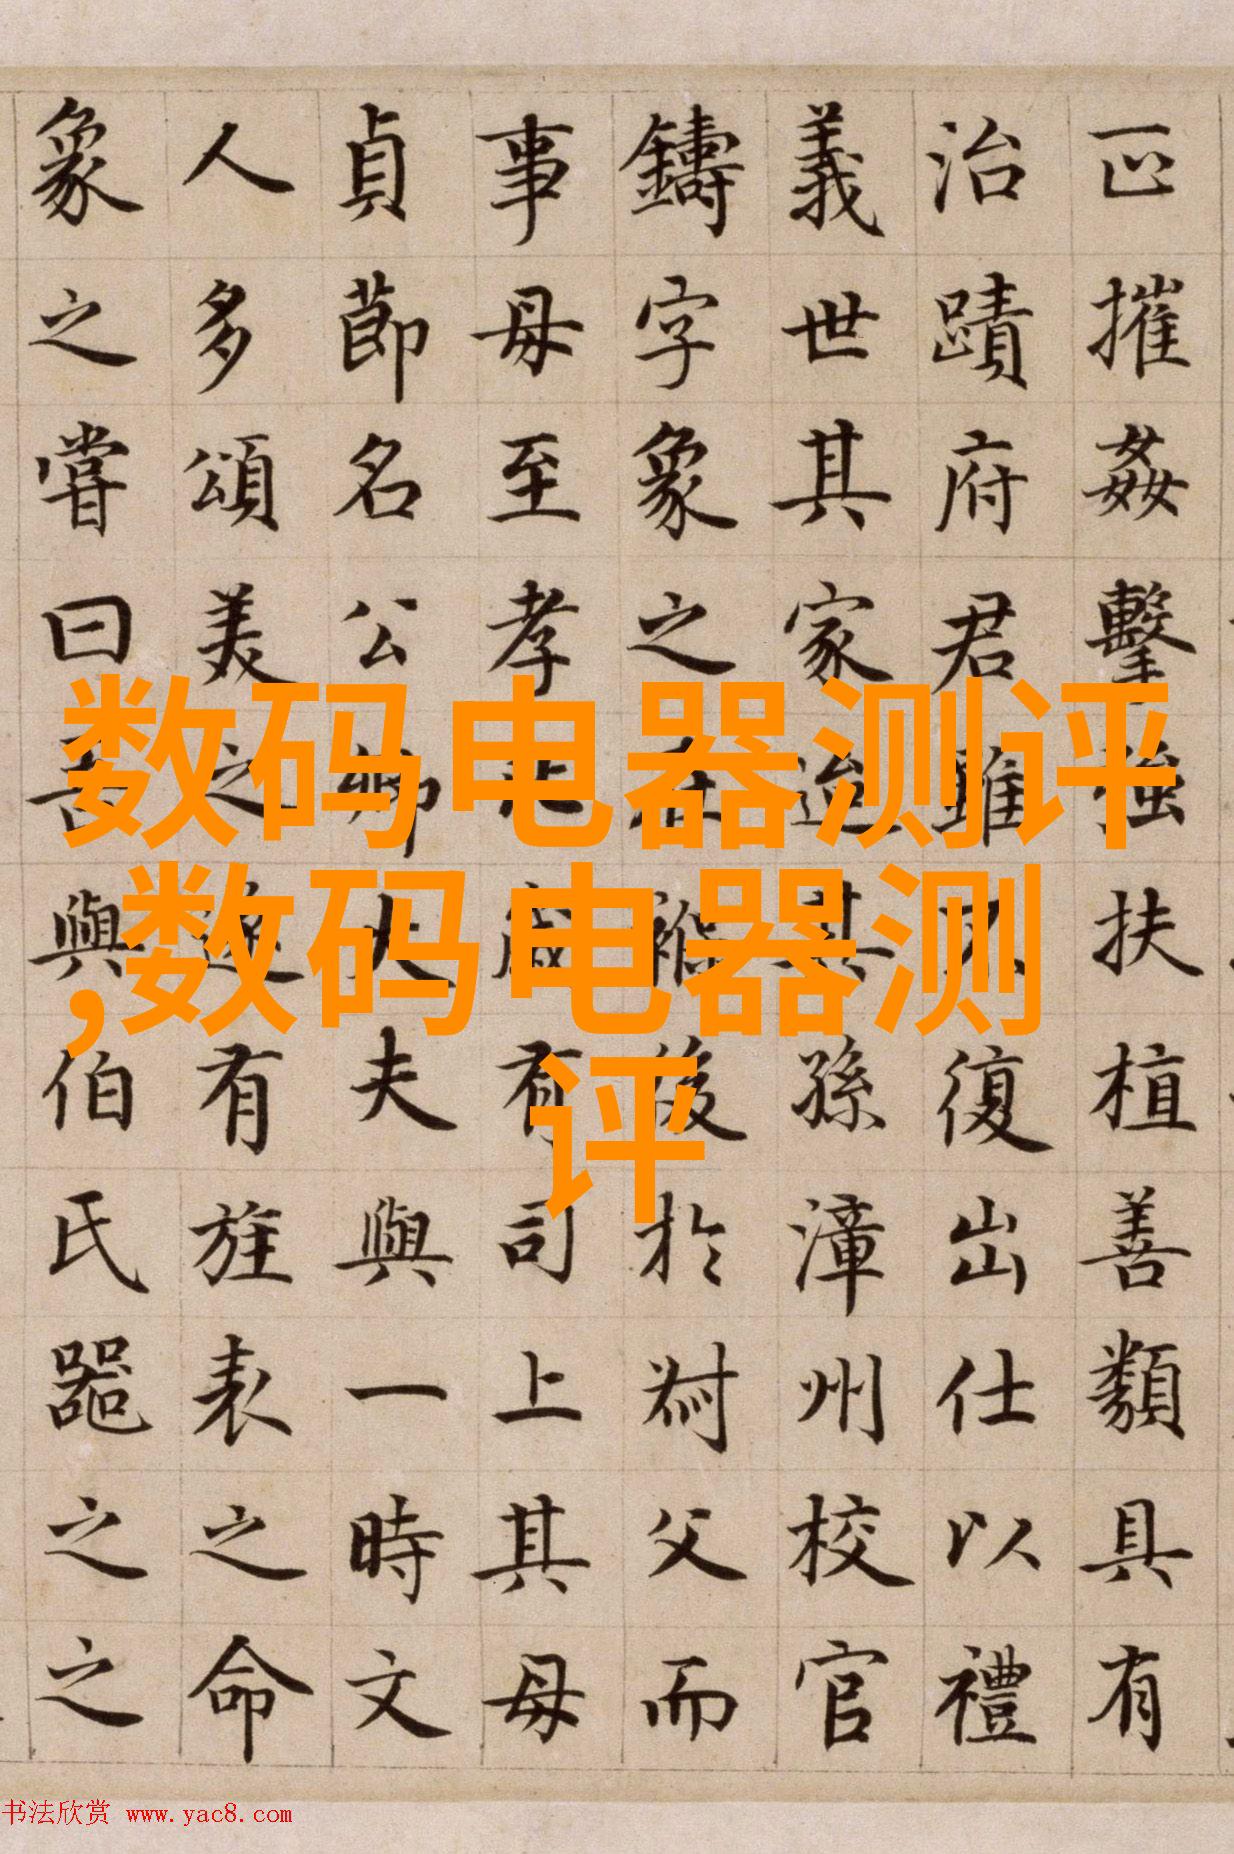 正摧姦擊強扶植善類具有
治蹟府君雖不復出仕以禮
義世其家迨其孫漳州校官
鑄字象之在褓後於父而
事母至孝歲有司上其母
貞節名公卿大夫與一時文
人多頌美之遂有旌表之命
象之嘗曰吾與伯氏噐之之
数码电器测评
,数码电器测
评
书法欣赏 www.yac8.com